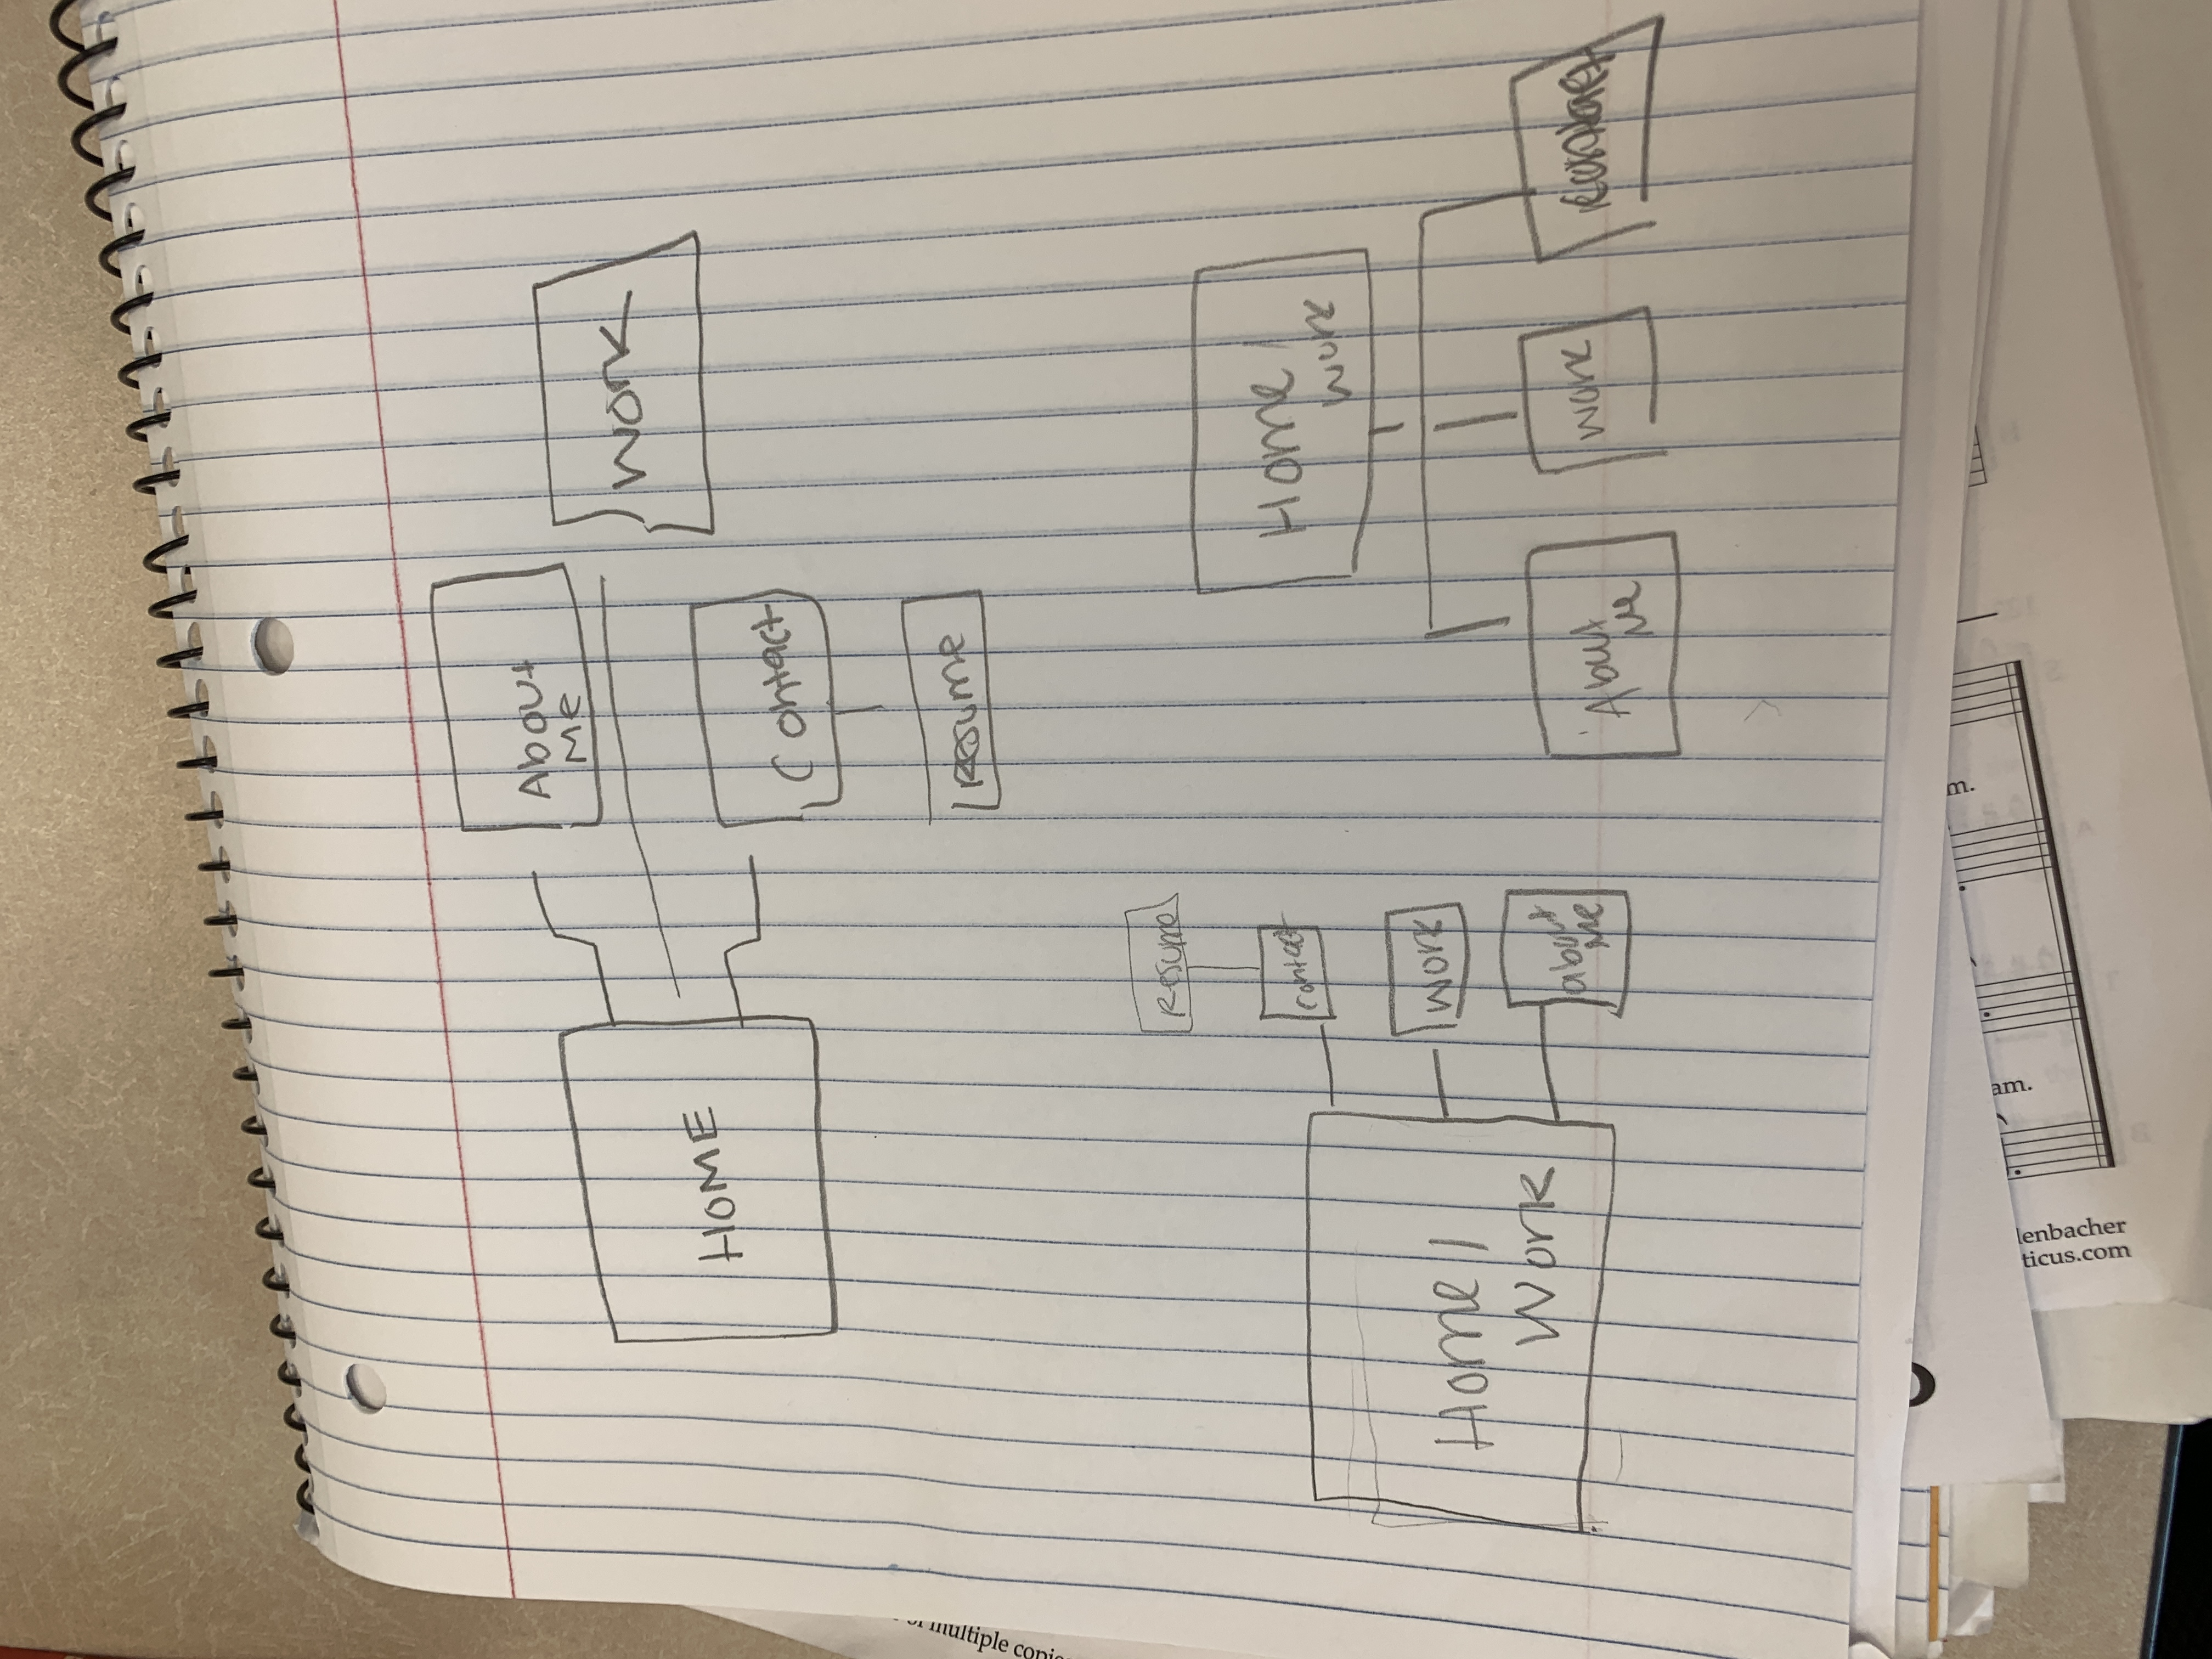 About
Me
Work
HOME
Contact
Resume
Resume
Contact
Home /
Work
Work
about
Me
Home /
Work
About
Me
Work
Contact
multiple copie
am.
m.
lenbacher
ticus.com